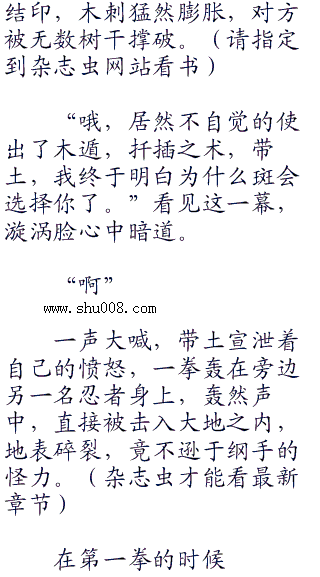 结印，木刺猛然膨胀，对方
被无数树干撑破。（请指定
到杂志虫网站看书）
“哦，居然不自觉的使
出了木遁，扦插之术，带
土，我终于明白为什么斑会
选择你了。”看见这一幕，
漩涡脸心中暗道。
“啊”
www.shu008.com
一声大喊，带土宣泄着
自己的愤怒，一拳轰在旁边
另一名忍者身上，轰然声
中，直接被击入大地之内，
地表碎裂，竟不逊于纲手的
怪力。（杂志虫才能看最新
章节）
在第一拳的时候